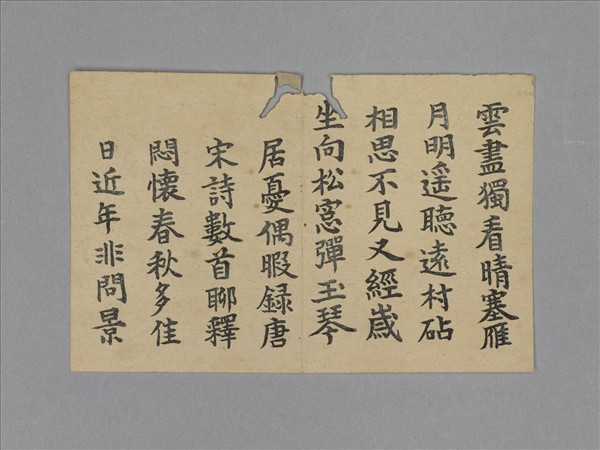 雲盡獨看晴塞雁
月明遥聽遠村砧
相思不見又經歲
坐向松窓彈玉琴
居憂偶暇録唐
宋詩數首聊釋
悶懷春秋多佳
日近年非問景